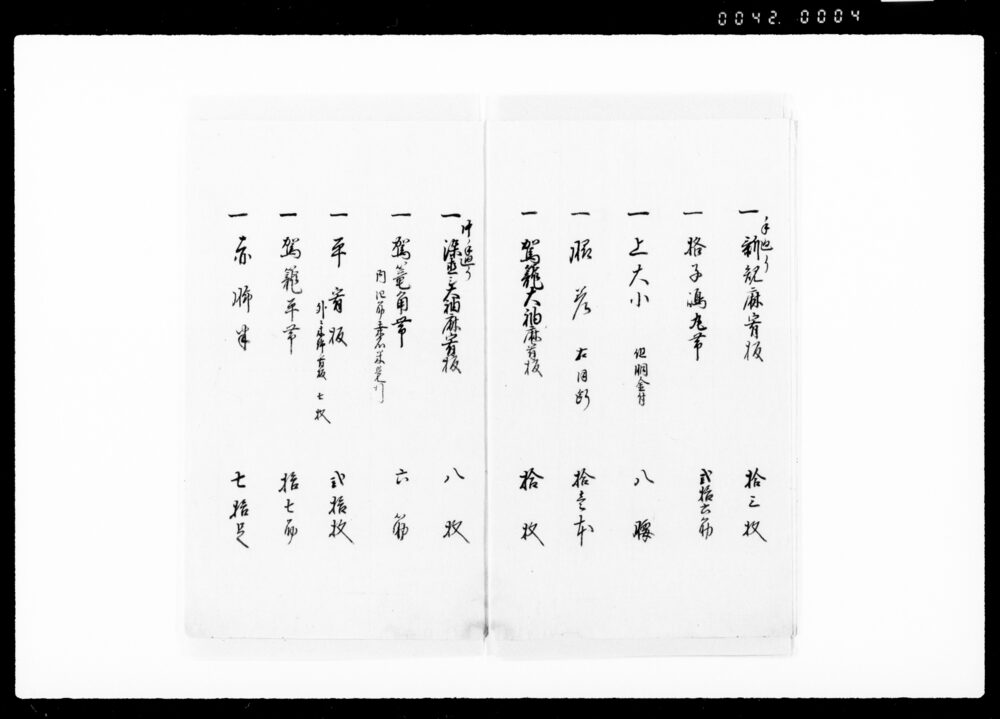 0042.0004
一 新規麻看板 拾三枚
手廻り
一 格子鴻丸帯 弐拾六筋
一 上大小 但胴金付 八腰
一 脇差 右同断 拾壱本
一 駕籠大袖麻看板 拾枚
一 大袖麻看板 八枚
一 駕篭角帯 六筋
一 平看板 弐拾枚
七枚
一 駕籠平帯 拾七筋
一 赤脚半 七拾足